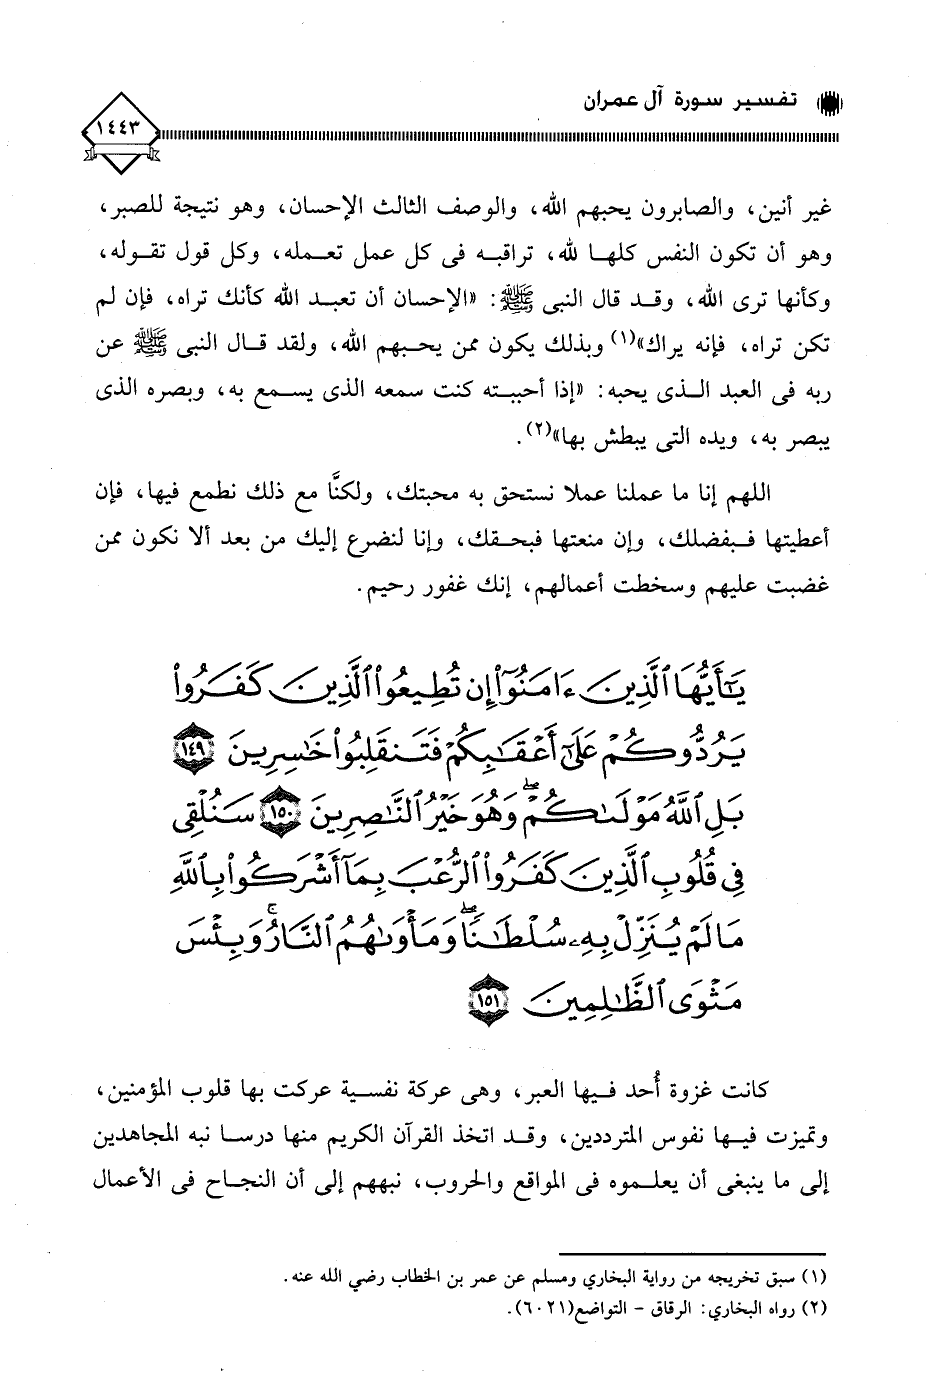 تفسير سورة آل عمران
١٤٤٣
غير أنين، والصابرون يحبهم الله، والوصف الثالث الإحسان، وهو نتيجة للصبر،
وهو أن تكون النفس كلها لله، تراقبه فى كل عمل تعمله، وكل قول تقوله،
وكأنها ترى الله، وقد قال النبى ﷺ: «الإحسان أن تعبد الله كأنك تراه، فإن لم
تكن تراه، فإنه يراك»(١) وبذلك يكون ممن يحبهم الله، ولقد قال النبى ﷺ عن
ربه فى العبد الذى يحبه: «إذا أحببته كنت سمعه الذى يسمع به، وبصره الذى
يبصر به، ويده التى يبطش بها»(٢).
اللهم إنا ما عملنا عملا نستحق به محبتك، ولكنَّا مع ذلك نطمع فيها، فإن
أعطيتها فبفضلك، وإن منعتها فبحقك، وإنا لنضرع إليك من بعد ألا نكون ممن
غضبت عليهم وسخطت أعمالهم، إنك غفور رحيم.
يَٰٓأَيُّهَا ٱلَّذِينَ ءَامَنُوٓا۟ إِن تُطِيعُوا۟ ٱلَّذِينَ كَفَرُوا۟
يَرُدُّوكُمْ عَلَىٰٓ أَعْقَٰبِكُمْ فَتَنقَلِبُوا۟ خَٰسِرِينَ ١٤٩
بَلِ ٱللَّهُ مَوْلَىٰكُمْ ۖ وَهُوَ خَيْرُ ٱلنَّٰصِرِينَ ١٥٠ سَنُلْقِى
فِى قُلُوبِ ٱلَّذِينَ كَفَرُوا۟ ٱلرُّعْبَ بِمَآ أَشْرَكُوا۟ بِٱللَّهِ
مَا لَمْ يُنَزِّلْ بِهِۦ سُلْطَٰنًا ۖ وَمَأْوَىٰهُمُ ٱلنَّارُ ۚ وَبِئْسَ
مَثْوَى ٱلظَّٰلِمِينَ ١٥١
كانت غزوة أُحد فيها العبر، وهى عركة نفسية عركت بها قلوب المؤمنين،
وتميزت فيها نفوس المترددين، وقد اتخذ القرآن الكريم منها درسا نبه المجاهدين
إلى ما ينبغى أن يعلموه فى المواقع والحروب، نبههم إلى أن النجاح فى الأعمال
(١) سبق تخريجه من رواية البخاري ومسلم عن عمر بن الخطاب رضي الله عنه.
(٢) رواه البخاري: الرقاق - التواضع(٦٠٢١).